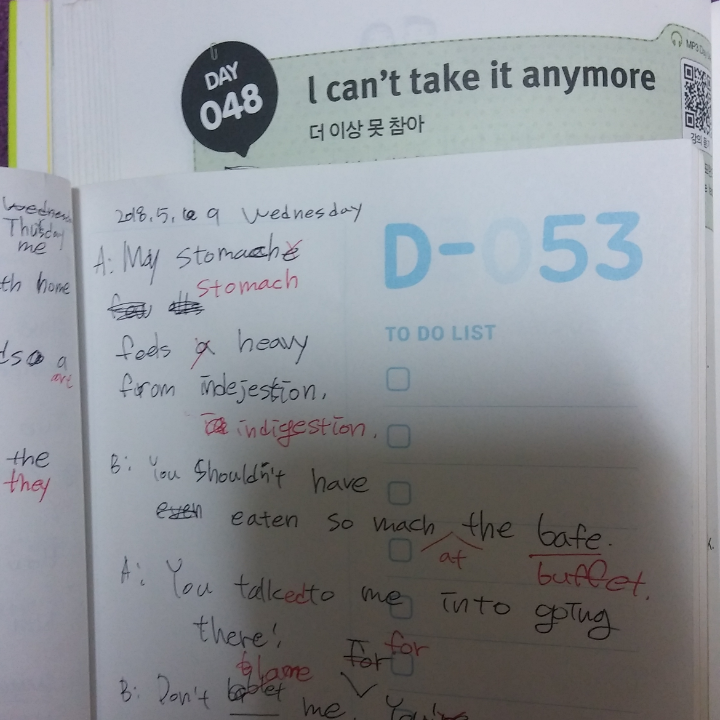 DAY
048
I can't take it anymore
더 이상 못 참아
Thusday
me
th home
a
the
they
2018.5. 9 Wednesday
D-053
TO DO LIST
A: My stomache
stomach
feels a heavy
from indejestion.
indigestion.
B: You shouldn't have
even eaten so mach the bafe.
at
buffet.
A: You talkedto me into going
there!
for for
blame
B: Don't me